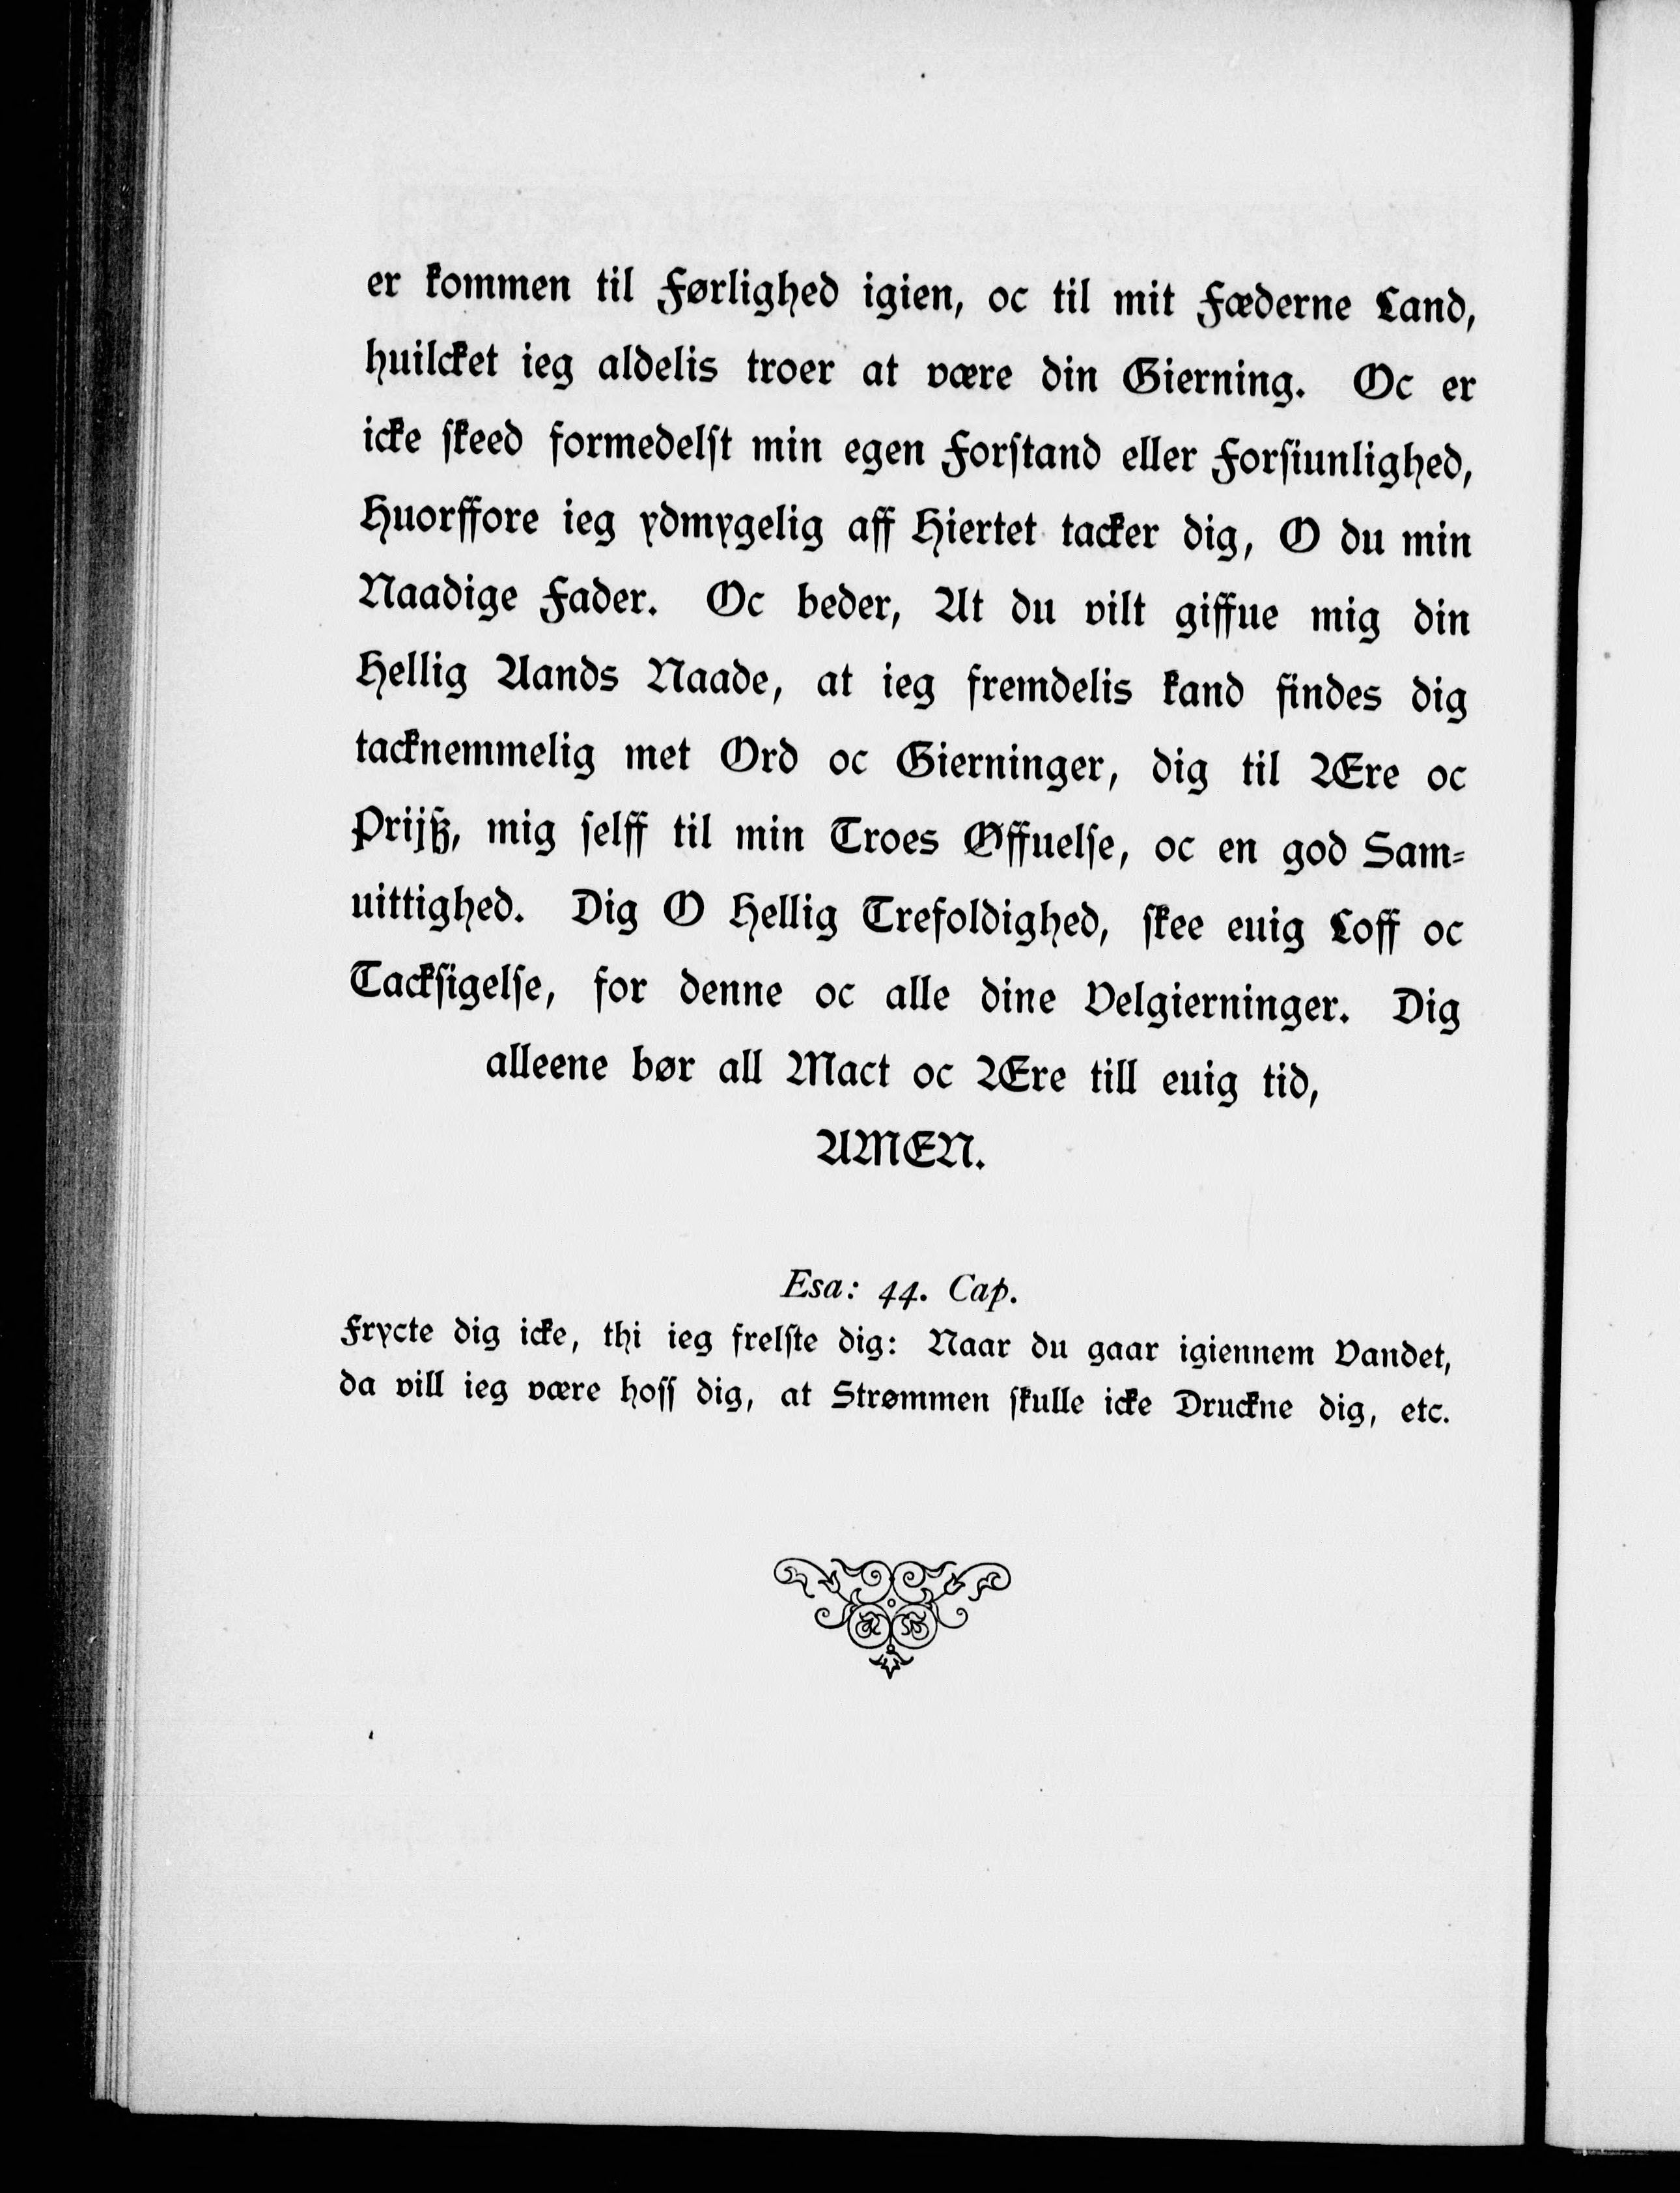 er kommen til Førlighed igien, oc til mit Fæderne Land,
huilcket ieg aldelis troer at være din Gierning. Oc er
icke skeed formedelst min egen Forstand eller Forsiunlighed,
Huorffore ieg ydmygelig aff Hiertet tacker dig, O du min
Naadige Fader. Oc beder, At du vilt giffue mig din
Hellig Aands Naade, at ieg fremdelis kand findes dig
tacknemmelig met Ord oc Gierninger, dig til Ære oc
Prijß, mig selff til min Troes Øffuelse, oc en god Sam-
uittighed. Dig O Hellig Trefoldighed, skee euig Loff oc
Tacksigelse, for denne oc alle dine Velgierninger. Dig
alleene bør all Mact oc Ære till euig tid,
AMEN.
Esa: 44. Cap.
Frycte dig icke, thi ieg frelste dig: Naar du gaar igiennem Vandet,
da vill ieg være hoss dig, at Strømmen skulle icke Druckne dig, etc.